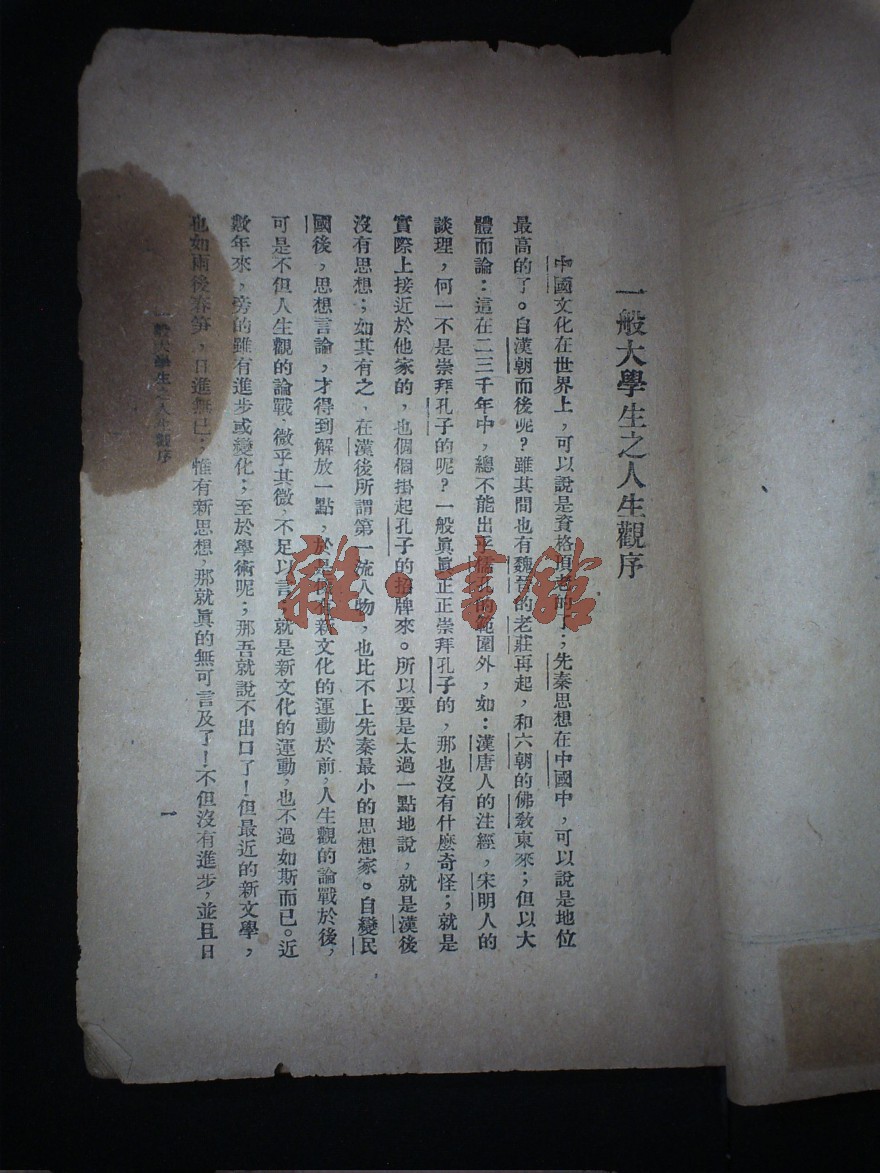 一般大學生之人生觀序
中國文化在世界上，可以說是資格頂老的了；先秦思想在中國中，可以說是地位
最高的了。自漢朝而後呢？雖其間也有魏晉的老莊再起，和六朝的佛敎東來；但以大
體而論：這在二三千年中，總不能出乎儒孔的範圍外，如：漢唐人的注經，宋明人的
談理，何一不是崇拜孔子的呢？一般眞眞正正崇拜孔子的，那也沒有什麼奇怪；就是
實際上接近於他家的，也個個掛起孔子的招牌來。所以要是太過一點地說，就是漢後
沒有思想；如其有之，在漢後所謂第一流人物，也比不上先秦最小的思想家。自變民
國後，思想言論，才得到解放一點，於是新文化的運動於前，人生觀的論戰於後，
可是不但人生觀的論戰，微乎其微，不足以言；就是新文化的運動，也不過如斯而已。近
數年來，旁的雖有進步或變化；至於學術呢；那吾就說不出口了！但最近的新文學，
也如雨後春筍，日進無已；惟有新思想，那就眞的無可言及了！不但沒有進步，並且日
一般大學生之人生觀序
一
雜·書館